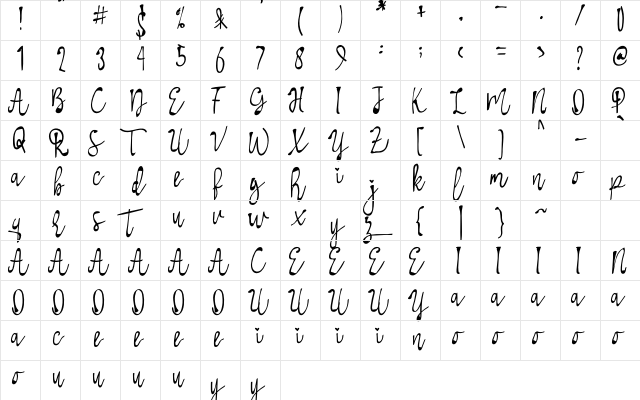 ! # $ % & ( ) * + , - . / 0
1 2 3 4 5 6 7 8 9 : ; < = > ? @
A B C D E F G H I J K L M N O P
Q R S T U V W X Y Z [ \ ] ^ _ `
a b c d e f g h i j k l m n o p
q r s t u v w x y z { | } ~
A A A A A A C E E E E I I I I N
O O O O O O U U U U Y a a a a a
a c e e e e i i i i n o o o o o
o u u u u y y